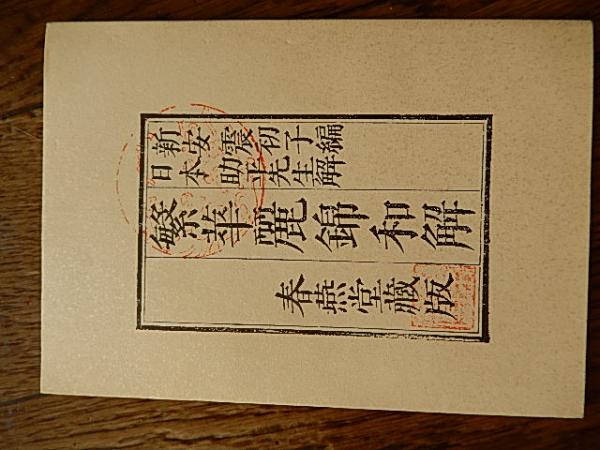 新安震初子編
日本助平先生解
繁華麗錦和解
春燕堂藏版